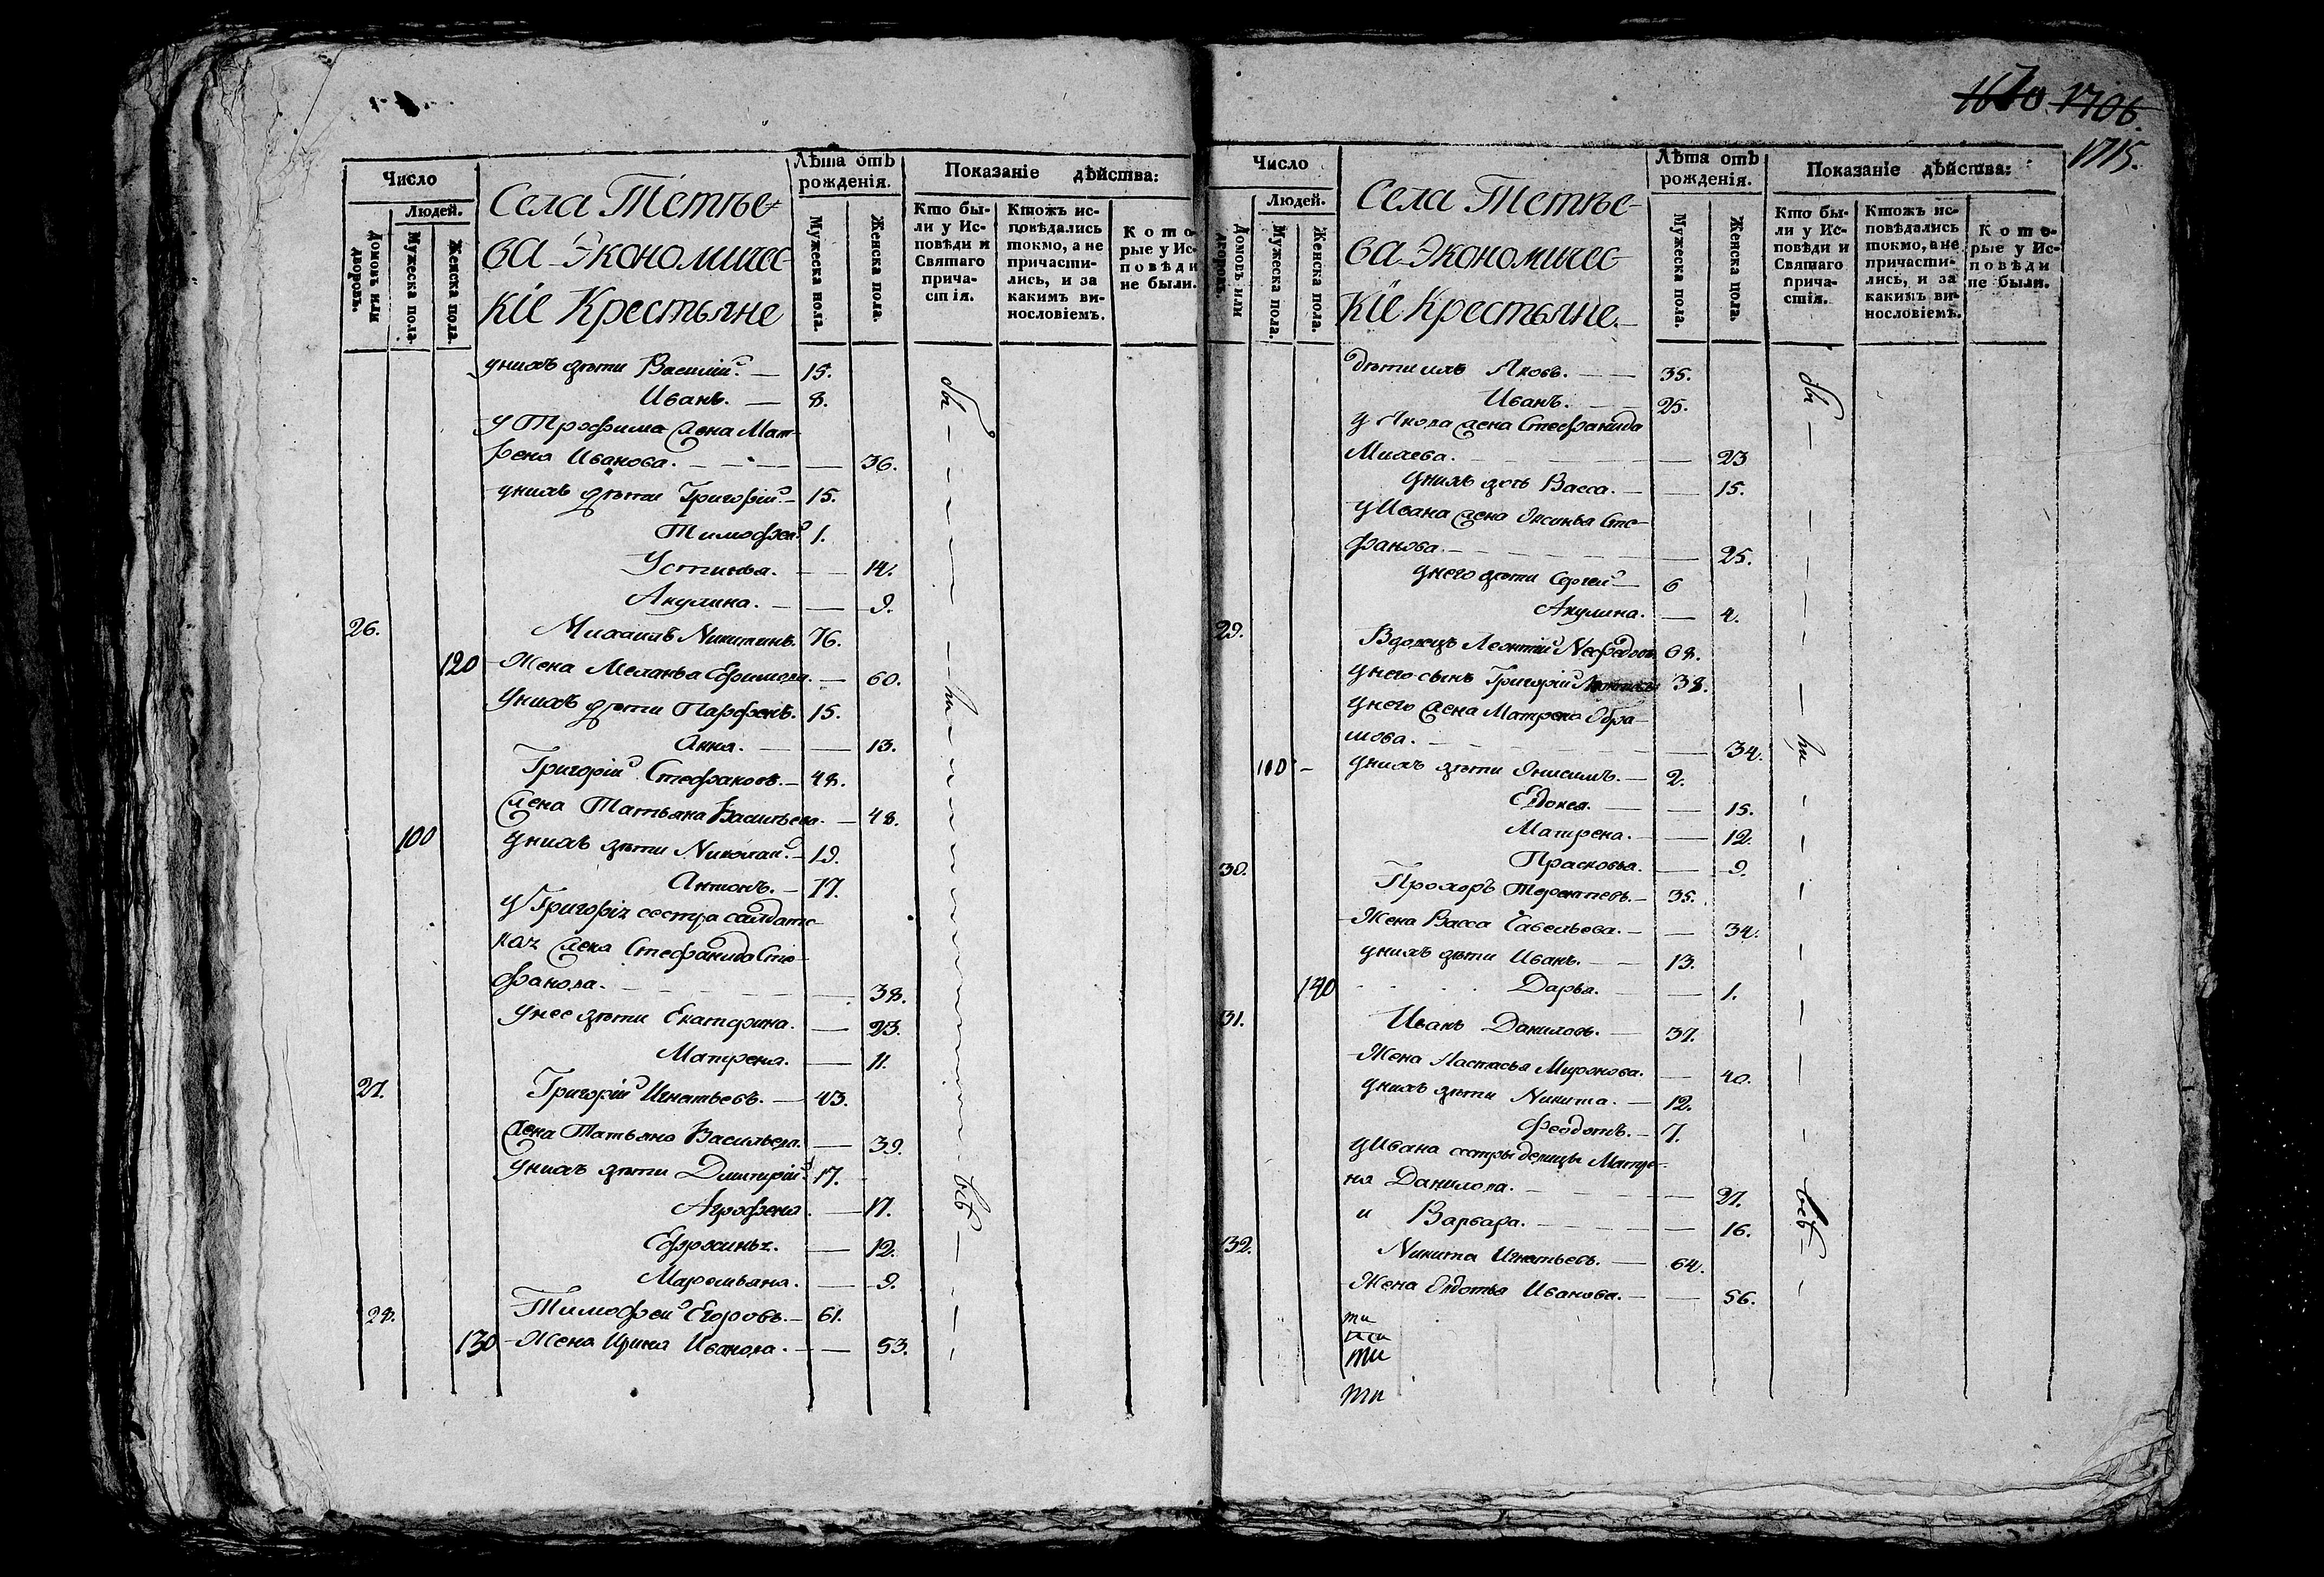 1670 1706.
1715.
Число
Людей.
Домовъ или дворовъ.
Мужеска пола.
Женска пола.
Села Тетѣе-
ва Экономичес-
кіе Крестьяне
Лѣта отъ рожденія.
Мужеска пола.
Женска пола.
Показаніе дѣйства:
Кто бы-
ли у Ис-
повѣди и
Святаго
прича-
стія.
Ктожъ ис-
повѣдались
токмо, а не
причасти-
лись, и за
какимъ ви-
нословіемъ.
Кото-
рые у Ис-
повѣди
не были.
унихъ дѣти Василій. — 15.
Иванъ. — 8.
у Трофима жена Мат-
рена Иванова. — 36.
унихъ дѣти Григорій. — 15.
Тимофей 1.
Устинья. — 14.
Акулина. — 9.
26. Михаилъ Никитинъ. 76.
120 Жена Меланья Ефимова. — 60.
унихъ дѣти Парфенъ. 15.
Анна. — 13.
Григорій Стефановъ. — 48.
жена Татьяна Васильева. — 48.
100 унихъ дѣти Николай. — 19.
Антонъ. — 17.
у Григорія сестра салдатс-
кая жена Стефанида Сте-
фанова. — 38.
унее дѣти Екатерина. — 23.
Матрена. — 11.
27. Григорій Игнатьевъ. — 43.
жена Татьяна Васильева. — 39.
унихъ дѣти Димитрій. 17.
Агрофена. — 17.
Ефросинья. — 12.
Маремьяна. — 9.
28. Тимофей Егоровъ. — 61.
130 Жена Ирина Иванова. — 53.
бы
ли
всѣ
Число
Людей.
Домовъ или дворовъ.
Мужеска пола.
Женска пола.
Села Тетѣе-
ва Экономичес-
кіе Крестьяне.
Лѣта отъ рожденія.
Мужеска пола.
Женска пола.
Показаніе дѣйства:
Кто бы-
ли у Ис-
повѣди и
Святаго
прича-
стія.
Ктожъ ис-
повѣдались
токмо, а не
причасти-
лись, и за
какимъ ви-
нословіемъ.
Кото-
рые у Ис-
повѣди
не были.
дѣти ихъ Яковъ. — 35.
Иванъ. — 25.
у Якова жена Стефанида
— 23
унихъ дочь Васса. — 15.
у Ивана жена Оксинья Сте-
фанова. — 25.
унего дѣти Сергей — 6
Акулина. — 4.
29. Вдовецъ Леонтій Нефедовъ 68.
унего сынъ Григорій 38.
унего жена Матрена Абра-
мова. — 34.
110 — унихъ дѣти Онисимъ. — 2.
Евдокея. — 15.
Матрена. — 12.
Прасковья. — 9.
30. Прохоръ Терентьевъ. — 35.
Жена Васса Савельева. — 34.
унихъ дѣти Иванъ. — 13.
140 Дарья. — 1.
31. Иванъ Даниловъ. — 37.
Жена Настасья Миронова. — 40.
унихъ дѣти Никита. — 12.
Феодотъ. — 7.
у Ивана сестры девицы Матре-
на Данилова. — 27.
и Варвара. — 16.
32. Никита Игнатьевъ. — 64.
Жена Авдотья Иванова. — 56.
бы
ли
всѣ